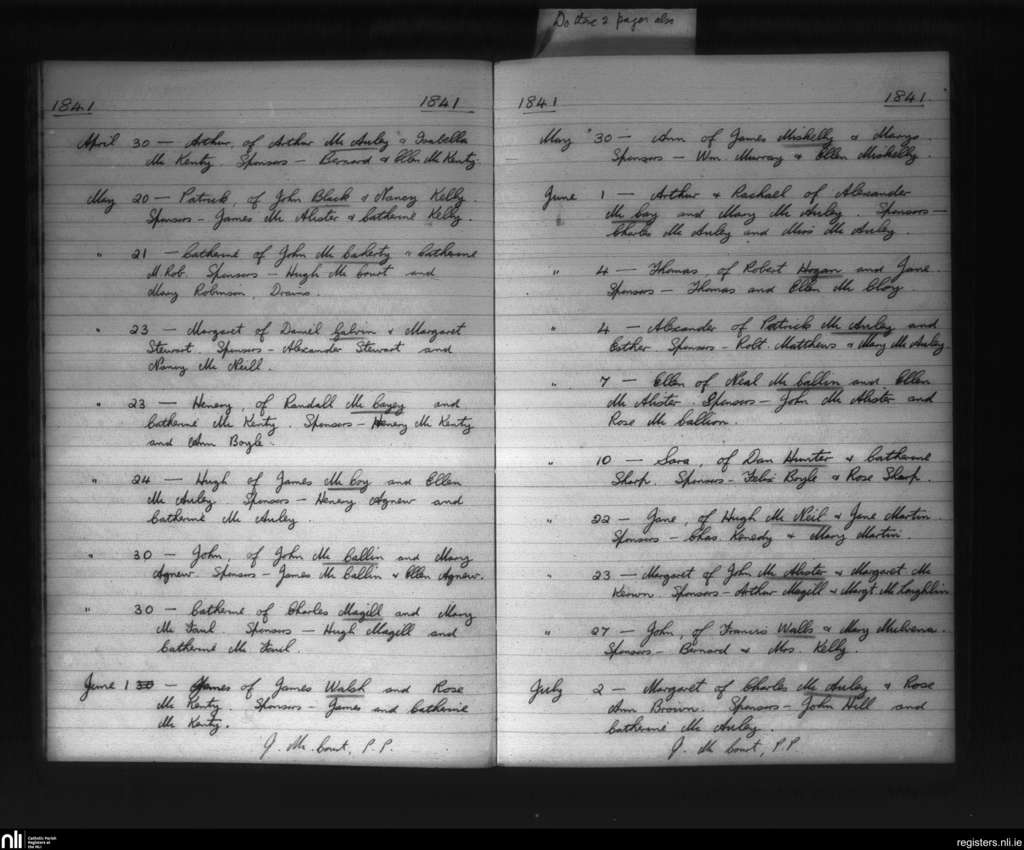 Do these 2 pages also
1841
1841
April 30 — Arthur, of Arthur Mc Auley & Isabella
Mc Kenty. Sponsors — Bernard & Ellen Mc Kenty.
May 20 — Patrick, of John Black & Nancy Kelly.
Sponsors — James Mc Alister & Catherine Kelly.
" 21 — Catherine of John Mc Caherty & Catherine
M. Rob. Sponsors — Hugh Mc Court and
Mary Robinson, Drains.
" 23 — Margaret of Daniel Galvin & Margaret
Stewart. Sponsors — Alexander Stewart and
Nancy Mc Neill.
" 23 — Henery, of Randall Mc Cayey and
Catherine Mc Kenty. Sponsors — Henery Mc Kenty
and Ann Boyle.
" 24 — Hugh of James Mc Coy and Ellen
Mc Auley. Sponsors — Henery Agnew and
Catherine Mc Auley.
" 30 — John, of John Mc Callin and Mary
Agnew. Sponsors — James Mc Callin & Ellen Agnew.
" 30 — Catherine of Charles Magill and Mary
Mc Faul. Sponsors — Hugh Magill and
Catherine Mc Faul.
June 1 30 — James of James Walsh and Rose
Mc Kenty. Sponsors — James and Catherine
Mc Kenty.
J. Mc Court, P.P.
1841
1841.
May 30 — Ann of James Miskelly & Margo.
Sponsors — Wm. Murray & Ellen Miskelly.
June 1 — Arthur & Rachael of Alexander
Mc Coy and Mary Mc Auley. Sponsors —
Charles Mc Auley and Miss Mc Auley.
" 4 — Thomas, of Robert Hogan and Jane.
Sponsors — Thomas and Ellen Mc Cloy.
" 4 — Alexander of Patrick Mc Auley and
Esther. Sponsors — Robt. Matthews & Mary Mc Auley.
" 7 — Ellen of Neal Mc Callin and Ellen
Mc Alister. Sponsors — John Mc Alister and
Rose Mc Callion.
" 10 — Sara, of Dan Hunter & Catherine
Sharp. Sponsors — Felix Boyle & Rose Sharp.
" 22 — Jane, of Hugh Mc Neil & Jane Martin.
Sponsors — Chas. Kenedy & Mary Martin.
" 23 — Margaret of John Mc Alister & Margaret Mc
Keown. Sponsors — Arthur Magill & Margt. Mc Loughlin
" 27 — John, of Francis Walls & Mary Mulvena.
Sponsors — Bernard & Mrs. Kelly.
July 2 — Margaret of Charles Mc Auley & Rose
Ann Brown. Sponsors — John Hill and
Catherine Mc Auley.
J. Mc Court, P.P
nli
Catholic Parish
Registers at
the NLI
registers.nli.ie